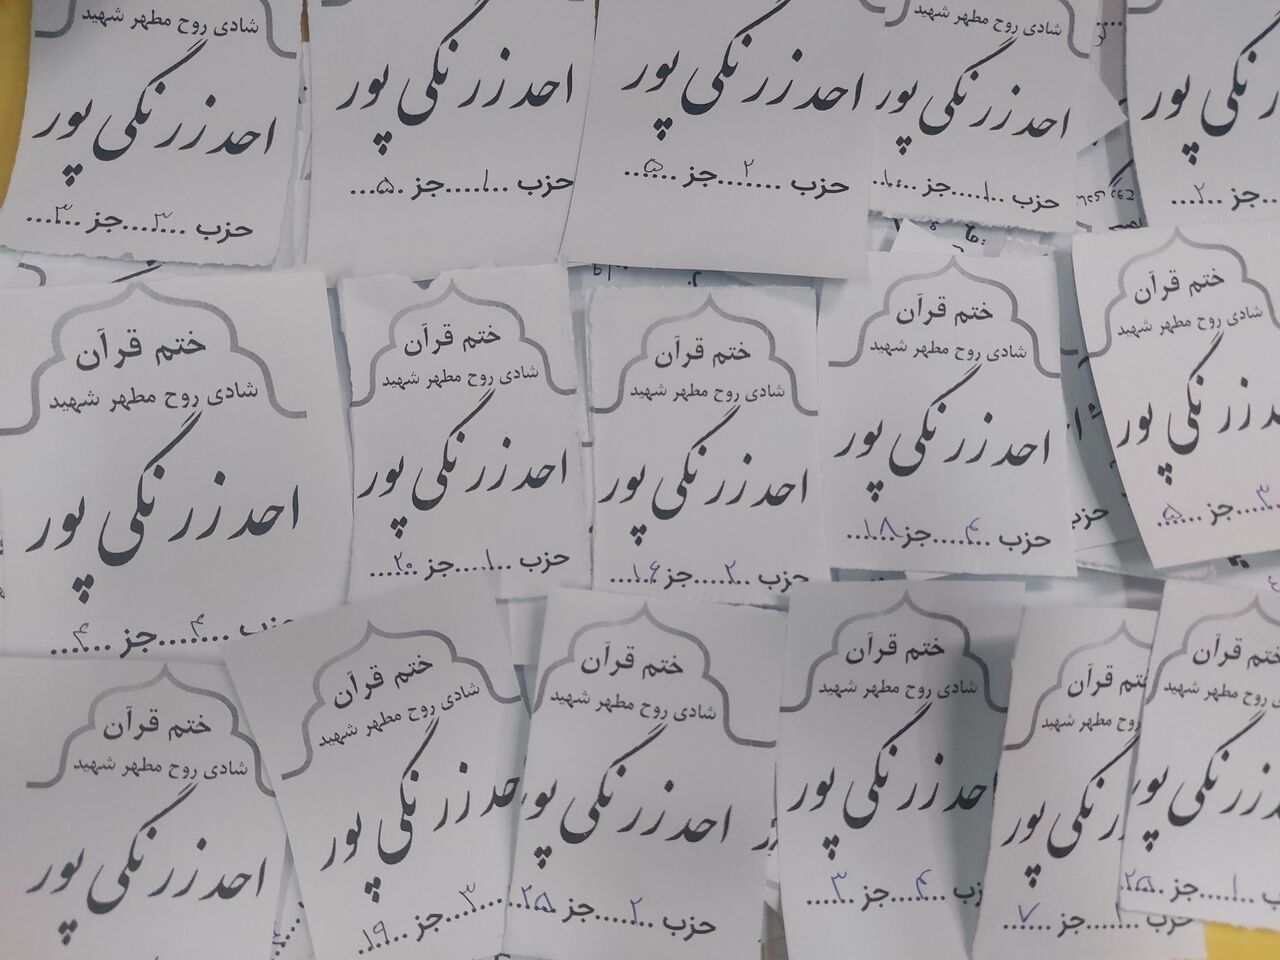 شادی روح مطهر شهید
احد زرنگی پور
حزب ...۳... جز ...۳...
احد زرنگی پور
حزب ...۱... جز ...۵...
احد زرنگی پور
حزب ...۲... جز ...۵...
شادی روح مطهر شهید
احد زرنگی پور
حزب ...۱... جز
زرنگی پور
جز ...۲...
ختم قرآن
شادی روح مطهر شهید
احد زرنگی پور
حزب ...۴... جز ...۴...
ختم قرآن
شادی روح مطهر شهید
احد زرنگی پور
حزب ...۱... جز ...۲۰...
ختم قرآن
شادی روح مطهر شهید
احد زرنگی پور
حزب ...۲... جز ...۱۶...
ختم قرآن
شادی روح مطهر شهید
احد زرنگی پور
حزب ...۴... جز ...۱۸...
ختم قرآن
شادی روح مطهر شهید
زرنگی پور
...۳... جز ...۵...
ختم قرآن
شادی روح مطهر شهید
احد زرنگی پور
ختم قرآن
شادی روح مطهر شهید
احد زرنگی پور
...۳... جز ...۱۹...
ختم قرآن
شادی روح مطهر شهید
احد زرنگی پور
حزب ...۲... جز ...۲۵...
ختم قرآن
شادی روح مطهر شهید
احد زرنگی پور
حزب ...۴... جز ...۳...
ختم قرآن
روح مطهر شهید
زرنگی پور
حزب جز ...۷...
ختم قرآن
شادی روح مطهر شهید
زرنگی پور
حزب ...۱... جز ...۲۵...